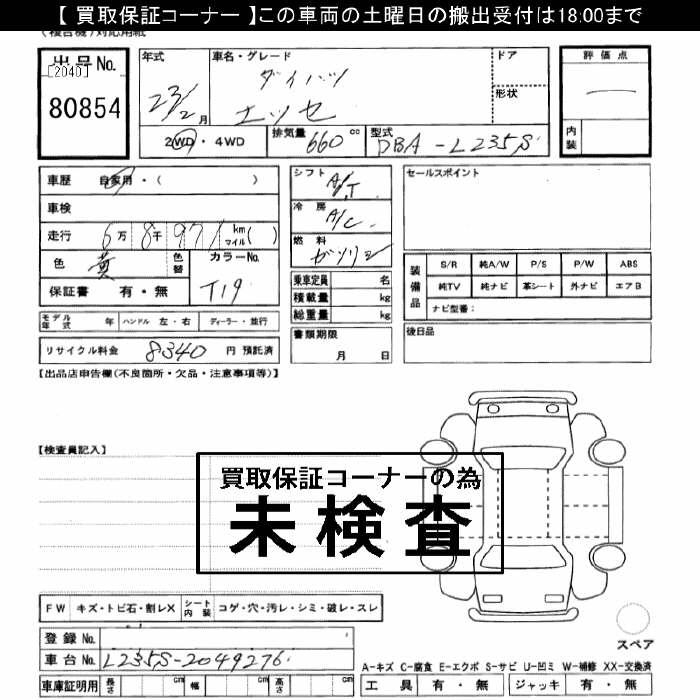 【 買取保証コーナー 】この車両の土曜日の搬出受付は18:00まで
(複合機)対応用紙
出品No.
[2040]
80854
年式
23/2月
車名・グレード
ダイハツ
エッセ
ドア
形状
評価点
内装
2WD・4WD
排気量 660 cc
型式 DBA-L235S
車歴 自家用・( )
車検
走行 6万8千971 km マイル( )
色 黄 色替
カラーNo.
T19
保証書 有・無
モデル年式 年 ハンドル 左・右 ディーラー・並行
リサイクル料金 8340 円 預託済
シフト A/T
冷房 A/C
燃料 ガソリン
乗車定員 名
積載量 kg
総重量 kg
書類期限
月 日
セールスポイント
装備品
S/R 純A/W P/S P/W ABS
純TV 純ナビ 革シート 外ナビ エアB
ナビ型番:
後日品
【出品店申告欄(不良箇所・欠品・注意事項等)】
【検査員記入】
買取保証コーナーの為
未検査
FW キズ・トビ石・割レX シート内装 コゲ・穴・汚レ・シミ・破レ・スレ
登録No.
車台No. L235S-2049276
車庫証明用 長さ cm 幅 cm 高さ cm
スペア
A-キズ C-腐食 E-エクボ S-サビ U-凹ミ W-補修 XX-交換済
工具 有・無 ジャッキ 有・無